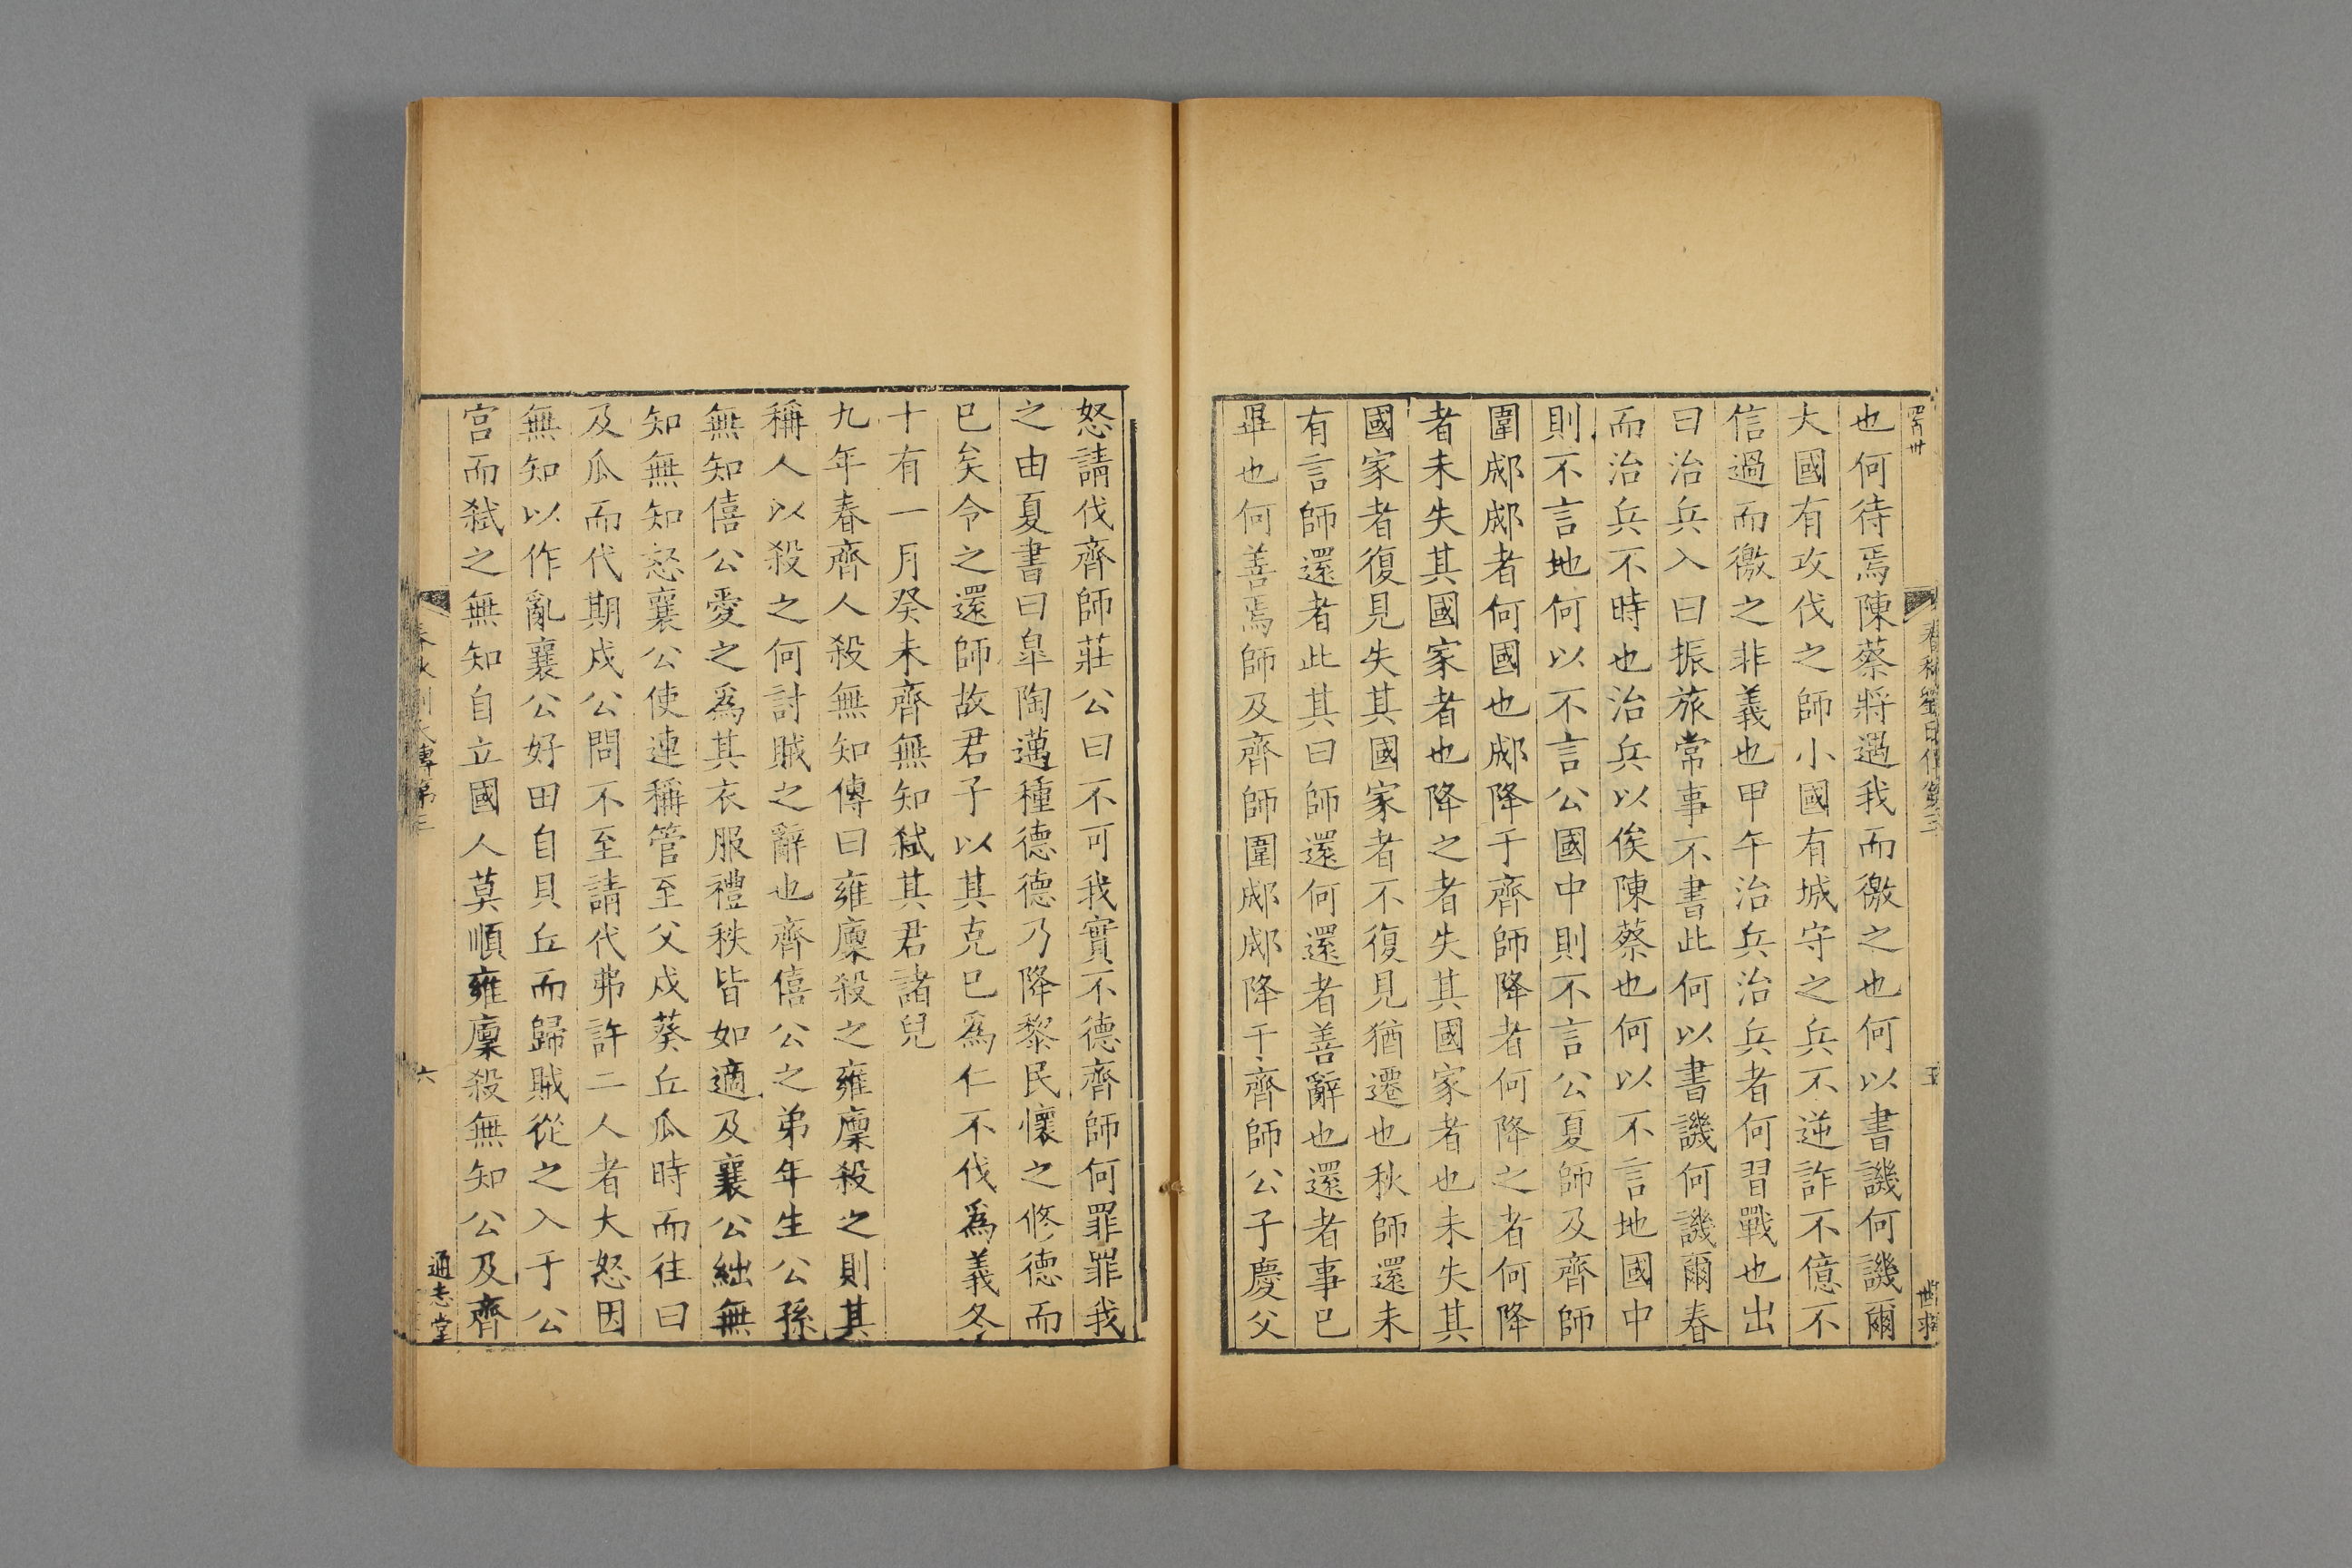 也何待焉陳蔡將過我而徼之也何以書譏何譏爾
大國有攻伐之師小國有城守之兵不逆詐不億不
信過而徼之非義也甲午治兵治兵者何習戰也出
曰治兵入曰振旅常事不書此何以書譏何譏爾春
而治兵不時也治兵以俟陳蔡也何以不言地國中
則不言地何以不言公國中則不言公夏師及齊師
圍郕郕者何國也郕降于齊師降者何降之者何降
者未失其國家者也降之者失其國家者也未失其
國家者復見失其國家者不復見猶遷也秋師還未
有言師還者此其曰師還何還者善辭也還者事已
畢也何善焉師及齊師圍郕郕降于齊師公子慶父
怒請伐齊師莊公曰不可我實不德齊師何罪罪我
之由夏書曰皐陶邁種德德乃降黎民懷之修德而
已矣令之還師故君子以其克已爲仁不伐爲義冬
十有一月癸未齊無知弑其君諸兒
九年春齊人殺無知傳曰雍廩殺之雍廩殺之則其
稱人以殺之何討賊之辭也齊僖公之弟年生公孫
無知僖公愛之爲其衣服禮秩皆如適及襄公絀無
知無知怒襄公使連稱管至父戍葵丘瓜時而往曰
及瓜而代期戍公問不至請代弗許二人者大怒因
無知以作亂襄公好田自貝丘而歸賊從之入于公
宮而弑之無知自立國人莫順雍廩殺無知公及齊
春秋劉氏傳第三
六
通志堂